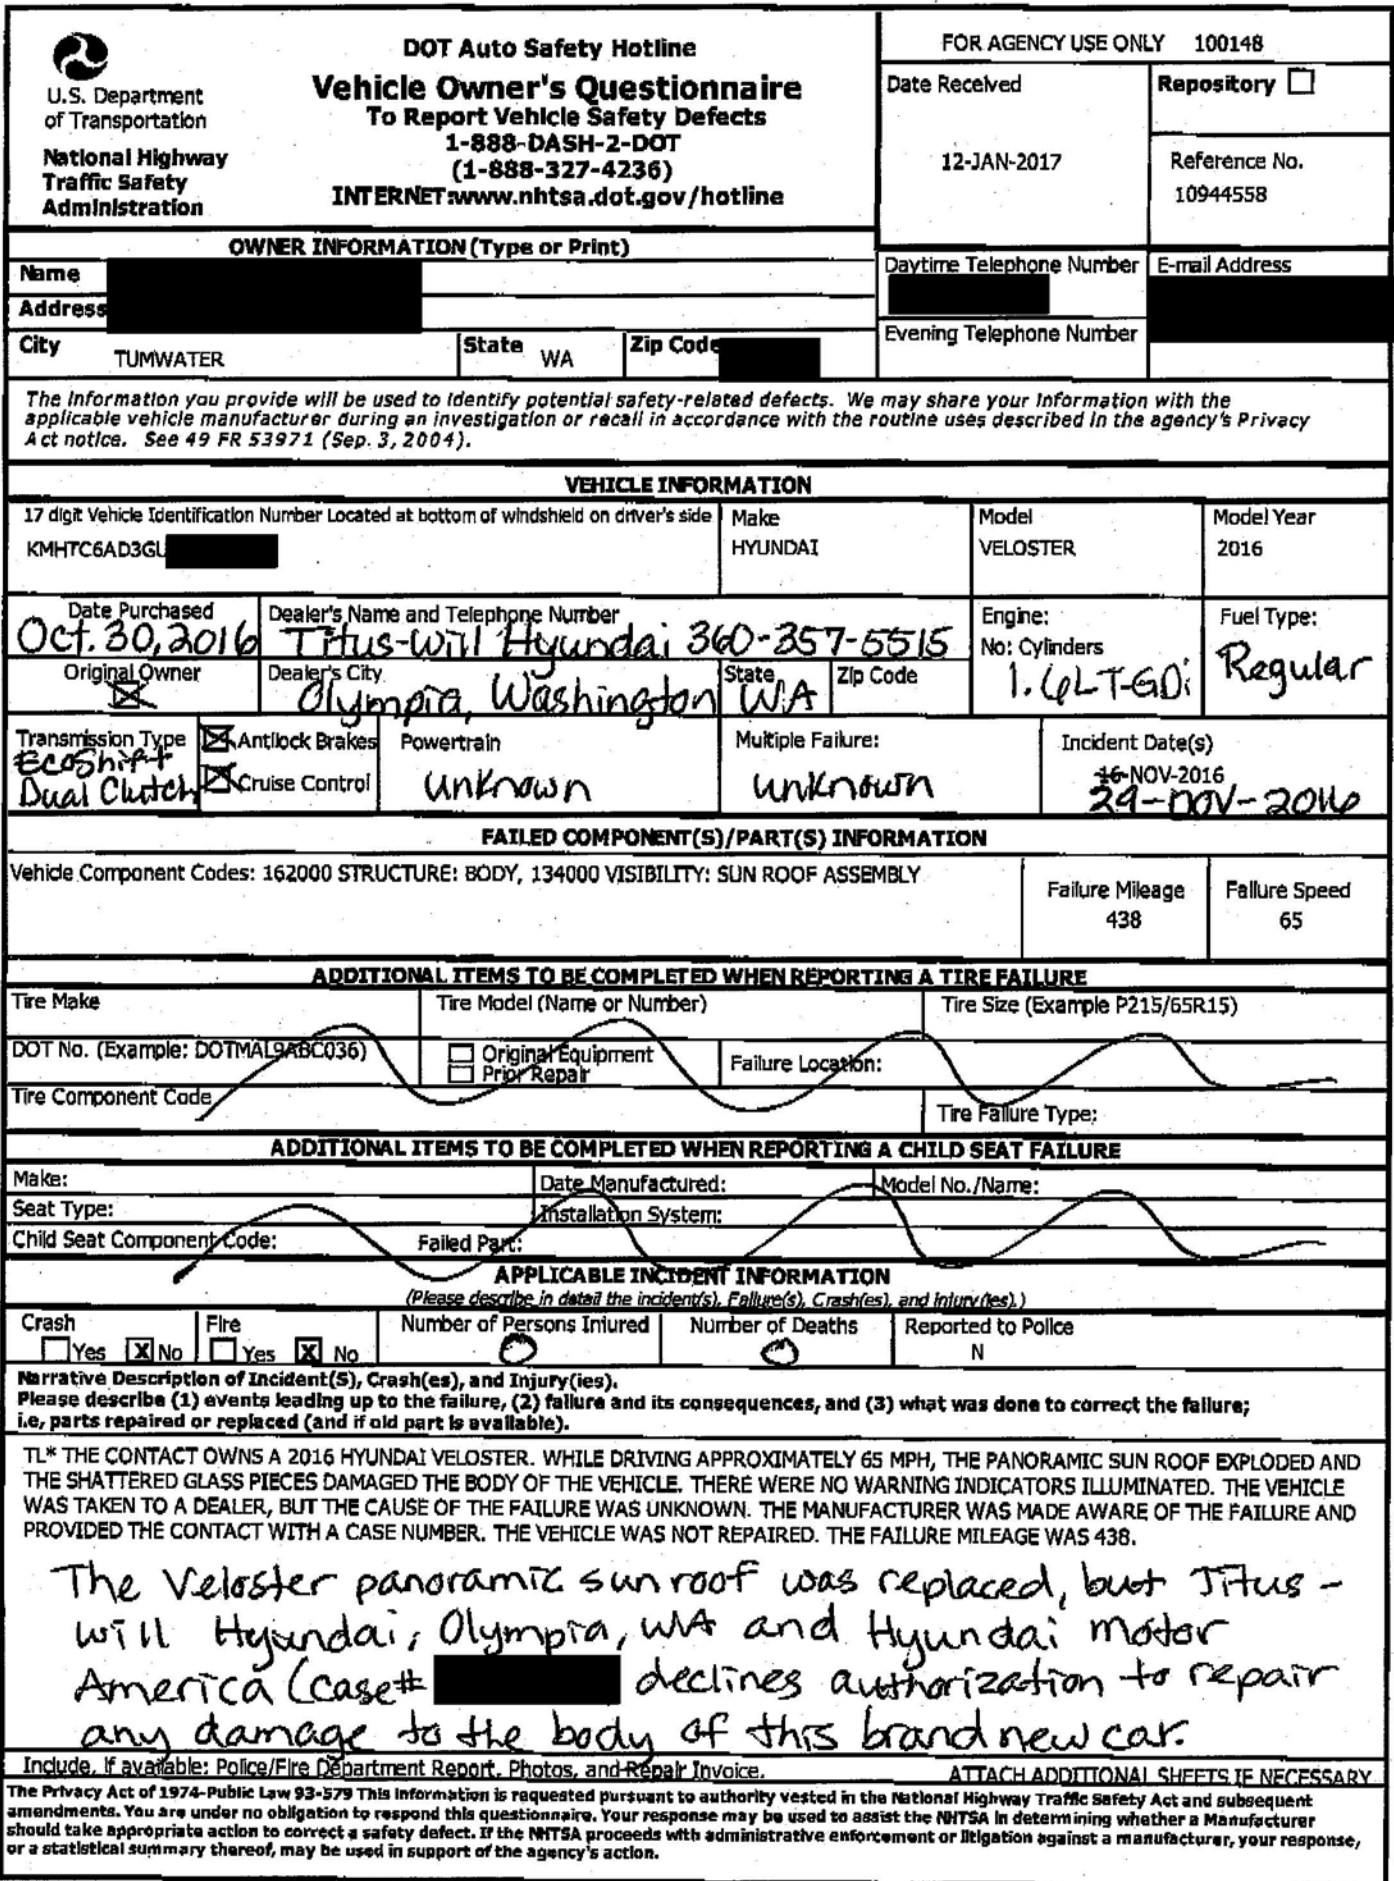 U.S. Department
of Transportation
National Highway
Traffic Safety
Administration
DOT Auto Safety Hotline
Vehicle Owner's Questionnaire
To Report Vehicle Safety Defects
1-888-DASH-2-DOT
(1-888-327-4236)
INTERNET:www.nhtsa.dot.gov/hotline
FOR AGENCY USE ONLY 100148
Date Received
12-JAN-2017
Repository
Reference No.
10944558
OWNER INFORMATION (Type or Print)
Name
Address
City TUMWATER State WA Zip Code
Daytime Telephone Number E-mail Address
Evening Telephone Number
The information you provide will be used to identify potential safety-related defects. We may share your information with the
applicable vehicle manufacturer during an investigation or recall in accordance with the routine uses described in the agency's Privacy
Act notice. See 49 FR 53971 (Sep. 3, 2004).
VEHICLE INFORMATION
17 digit Vehicle Identification Number Located at bottom of windshield on driver's side Make Model Model Year
KMHTC6AD3GU HYUNDAI VELOSTER 2016
Date Purchased Dealer's Name and Telephone Number Engine: Fuel Type:
Oct. 30, 2016 Titus-Will Hyundai 360-357-5515 No: Cylinders
Original Owner Dealer's City State Zip Code
Olympia, Washington WA 1.6LT-GDi Regular
Transmission Type Antilock Brakes Powertrain Multiple Failure: Incident Date(s)
EcoShift
Dual Clutch Cruise Control Unknown Unknown 16-NOV-2016
29-NOV-2016
FAILED COMPONENT(S)/PART(S) INFORMATION
Vehicle Component Codes: 162000 STRUCTURE: BODY, 134000 VISIBILITY: SUN ROOF ASSEMBLY
Failure Mileage Failure Speed
438 65
ADDITIONAL ITEMS TO BE COMPLETED WHEN REPORTING A TIRE FAILURE
Tire Make Tire Model (Name or Number) Tire Size (Example P215/65R15)
DOT No. (Example: DOTMAL9ABC036) Original Equipment
Prior Repair Failure Location:
Tire Component Code Tire Failure Type:
ADDITIONAL ITEMS TO BE COMPLETED WHEN REPORTING A CHILD SEAT FAILURE
Make: Date Manufactured: Model No./Name:
Seat Type: Installation System:
Child Seat Component Code: Failed Part:
APPLICABLE INCIDENT INFORMATION
(Please describe in detail the incident(s), Failure(s), Crash(es), and injury(ies).)
Crash Fire Number of Persons Injured Number of Deaths Reported to Police
Yes X No Yes X No 0 0 N
Narrative Description of Incident(S), Crash(es), and Injury(ies).
Please describe (1) events leading up to the failure, (2) failure and its consequences, and (3) what was done to correct the failure;
i.e, parts repaired or replaced (and if old part is available).
TL* THE CONTACT OWNS A 2016 HYUNDAI VELOSTER. WHILE DRIVING APPROXIMATELY 65 MPH, THE PANORAMIC SUN ROOF EXPLODED AND
THE SHATTERED GLASS PIECES DAMAGED THE BODY OF THE VEHICLE. THERE WERE NO WARNING INDICATORS ILLUMINATED. THE VEHICLE
WAS TAKEN TO A DEALER, BUT THE CAUSE OF THE FAILURE WAS UNKNOWN. THE MANUFACTURER WAS MADE AWARE OF THE FAILURE AND
PROVIDED THE CONTACT WITH A CASE NUMBER. THE VEHICLE WAS NOT REPAIRED. THE FAILURE MILEAGE WAS 438.
The Veloster panoramic sunroof was replaced, but Titus-
Will Hyundai, Olympia, WA and Hyundai Motor
America (case# declines authorization to repair
any damage to the body of this brand new car.
Include, if available: Police/Fire Department Report, Photos, and Repair Invoice. ATTACH ADDITIONAL SHEETS IF NECESSARY
The Privacy Act of 1974-Public Law 93-579 This information is requested pursuant to authority vested in the National Highway Traffic Safety Act and subsequent
amendments. You are under no obligation to respond this questionnaire. Your response may be used to assist the NHTSA in determining whether a Manufacturer
should take appropriate action to correct a safety defect. If the NHTSA proceeds with administrative enforcement or litigation against a manufacturer, your response,
or a statistical summary thereof, may be used in support of the agency's action.